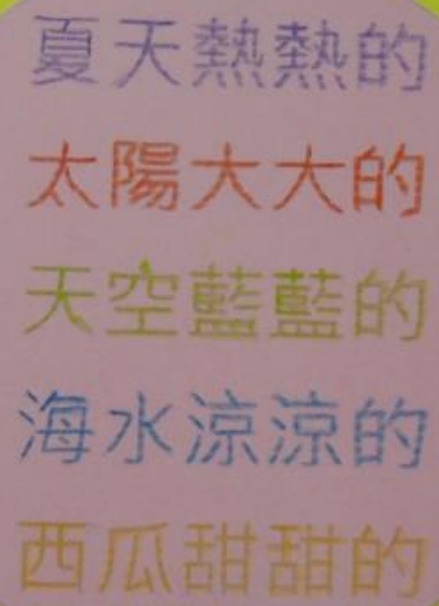 夏天熱熱的
太陽大大的
天空藍藍的
海水涼涼的
西瓜甜甜的